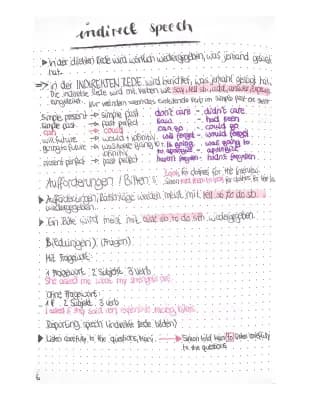 indirect speech
▸ In der direkten Rede wird wörtlich wiedergegeben, was jemand gesagt
hat.
⇒ in der INDIREKTEN REDE wird berichtet, was jemand gesagt hat.
Die indirekte Rede wird mit Verben wie say, tell sb., add, answer, explain
eingeleitet. Wir verwenden einleitende Verb im simple past
simple present → simple past don't care - didn't care
simple past → past perfect saw - had seen
can → could can go - could go
will future → would + infinitiv will forget - would forget
going to future → was/were going to + is going - was going to
infinitiv to apologize - apologize
present perfect → past perfect haven't forgotten - hadn't forgotten
Aufforderungen / Bitten: Look for clothes for the interview
▸ Aufforderungen, Ratschläge werden meist mit tell sb to do sth
wiedergegeben.
▸ Eine Bitte wird meist mit ask sb to do sth wiedergegeben.
Bildungen (Fragen)
Mit Fragewort:
1 Fragewort 2 Subjekt 3 verb
She asked me what my strengths
Ohne Fragewort:
1 if 2 Subjekt 3 verb
I asked if they sold very expensive
Reporting speech (indirekte Rede bilden)
▸ Listen carefully to the questions, → Simon told to listen carefully
to the questions
6